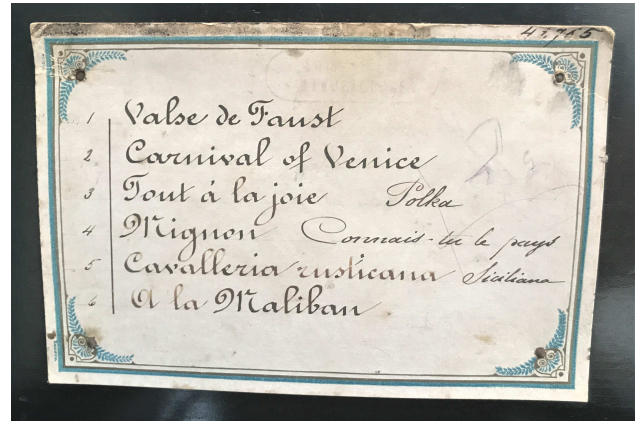 41,765
1 Valse de Faust
2 Carnival of Venice
3 Tout à la joie Polka
4 Mignon Connais-tu le pays
5 Cavalleria rusticana Siciliana
6 A la Maliban